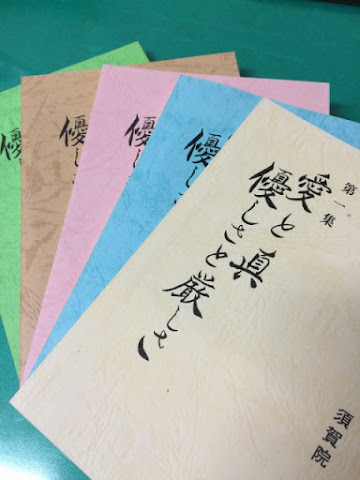 第一集
愛と真
優しさと厳しさ
須賀院
優しさ
優しさ
優しさ
優